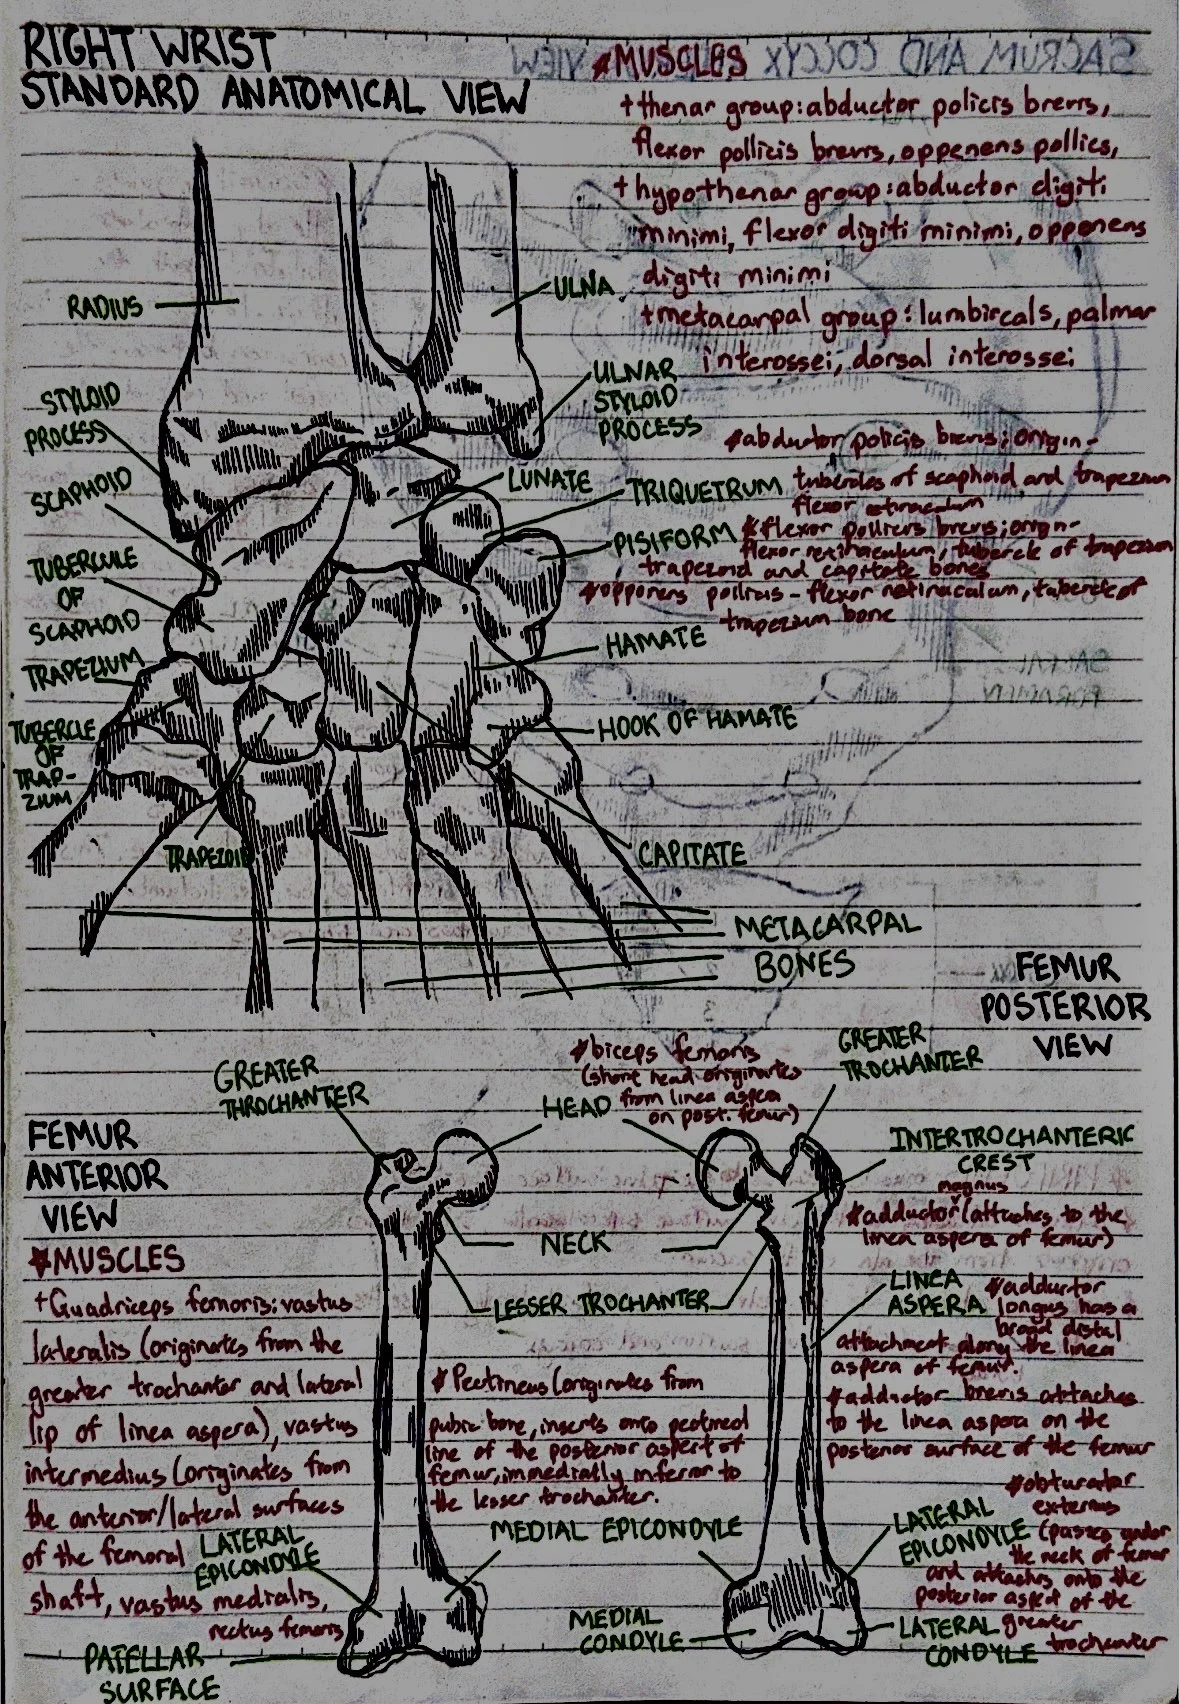 RIGHT WRIST
STANDARD ANATOMICAL VIEW
SACRUM AND COCCYX
VIEW
*MUSCLES
+thenar group: abductor policis brevis,
flexor pollicis brevis, oppenens pollics,
+hypothenar group: abductor digiti
minimi, flexor digiti minimi, opponens
digiti minimi
+metacarpal group: lumbircals, palmar
interossei, dorsal interossei
RADIUS
ULNA
STYLOID
PROCESS
ULNAR
STYLOID
PROCESS
SCAPHOID
LUNATE
TRIQUETRUM
PISIFORM
TUBERCULE
OF
SCAPHOID
TRAPEZIUM
HAMATE
TUBERCLE
OF
TRAP-
ZIUM
HOOK OF HAMATE
TRAPEZOID
CAPITATE
METACARPAL
BONES
*abductor policis brevis; origin-
tubercles of scaphoid and trapezium
flexor retinaculum
*flexor pollicis brevis; origin-
flexor retinaculum, tubercle of trapezium
trapezoid and capitate bones
*opponens pollicis - flexor retinaculum, tubercle of
trapezium bone
FEMUR
POSTERIOR
VIEW
GREATER
THROCHANTER
*biceps femoris
(short head originates
from linea aspera
on post. femur)
HEAD
GREATER
TROCHANTER
FEMUR
ANTERIOR
VIEW
INTERTROCHANTERIC
CREST
magnus
*adductor (attaches to the
linea aspera of femur)
NECK
LESSER TROCHANTER
LINEA
ASPERA
*adductor
longus has a
broad distal
attachment along the linea
aspera of femur.
*adductor brevis attaches
to the linea aspera on the
posterior surface of the femur
*MUSCLES
+Quadriceps femoris: vastus
lateralis (originates from the
greater trochanter and lateral
lip of linea aspera), vastus
intermedius (originates from
the anterior/lateral surfaces
of the femoral
shaft, vastus medialis,
rectus femoris
*Pectineus (originates from
pubic bone, inserts onto pectineal
line of the posterior aspect of
femur, immedially inferior to
the lesser trochanter.
LATERAL
EPICONDYLE
MEDIAL EPICONDYLE
LATERAL
EPICONDYLE
*obturator
externus
(passes under
the neck of femur
and attaches onto the
posterior aspect of the
greater
trochanter
MEDIAL
CONDYLE
LATERAL
CONDYLE
PATELLAR
SURFACE